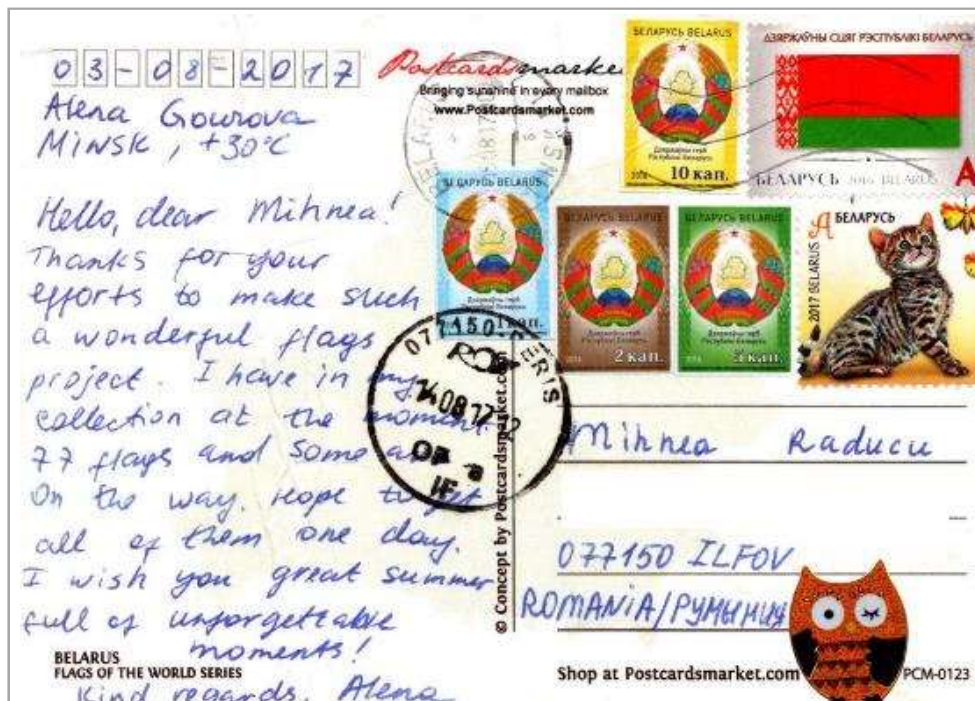 03-08-2017
Alena Gourova
MINSK, +30°C
Hello, dear Mihnea!
Thanks for your
efforts to make such
a wonderful flags
project. I have in my
collection at the moment
77 flags and some are
On the way. Hope to get
all of them one day.
I wish you great summer
full of unforgettable
moments!
Kind regards, Alena
BELARUS
FLAGS OF THE WORLD SERIES
Postcardsmarket
Bringing sunshine in every mailbox
www.Postcardsmarket.com
БЕЛАРУСЬ BELARUS
Дзяржаўны герб
Рэспублікі Беларусь
2016 10 кап.
ДЗЯРЖАЎНЫ СЦЯГ РЭСПУБЛІКІ БЕЛАРУСЬ
БЕЛАРУСЬ 2016 BELARUS
A
БЕЛАРУСЬ BELARUS
Дзяржаўны герб
Рэспублікі Беларусь
1 кап.
БЕЛАРУСЬ BELARUS
Дзяржаўны герб
Рэспублікі Беларусь
2 кап.
БЕЛАРУСЬ BELARUS
Дзяржаўны герб
Рэспублікі Беларусь
кап.
A БЕЛАРУСЬ
2017 BELARUS
077150
14.08.17
© Concept by Postcardsmarket.c
Mihnea Raducu
077150 ILFOV
ROMANiA/РУМЫНИЯ
Shop at Postcardsmarket.com
PCM-0123